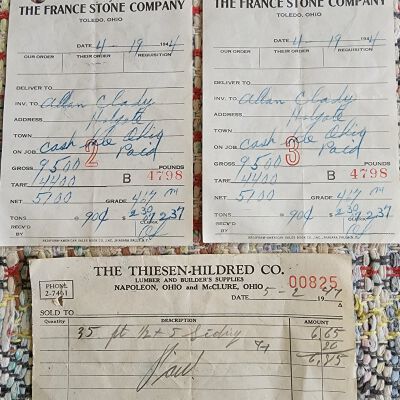 THE FRANCE STONE COMPANY
TOLEDO, OHIO
DATE 4-19 1944
OUR ORDER THEIR ORDER REQUISITION
DELIVER TO
INV. TO Allan Clady
ADDRESS Holgate
TOWN Ohio
ON JOB Cash Sale Paid
2
GROSS 9500 POUNDS
TARE 4400 B 4798
NET 5100 GRADE
TONS 90¢ $2.30 2.37
REC'D BY
REDIFORM-AMERICAN SALES BOOK CO., INC., NIAGARA FALLS, N.Y.
THE FRANCE STONE COMPANY
TOLEDO, OHIO
DATE 4-19 1944
OUR ORDER THEIR ORDER REQUISITION
DELIVER TO
INV. TO Allan Clady
ADDRESS Holgate
TOWN Ohio
ON JOB Cash Sale Paid
3
GROSS 9500 POUNDS
TARE 4400 B 4798
NET 5100 GRADE
TONS 90¢ $2.30 2.37
REC'D BY
REDIFORM-AMERICAN SALES BOOK CO., INC., NIAGARA FALLS, N.Y.
THE THIESEN-HILDRED CO.
PHONE 2-7461
LUMBER AND BUILDER'S SUPPLIES
00825
NAPOLEON, OHIO and McCLURE, OHIO
DATE 5-2 19
SOLD TO
Quantity DESCRIPTION AMOUNT
35 ft 1/2 x 5 Siding 6.65
20
6.85
Paid